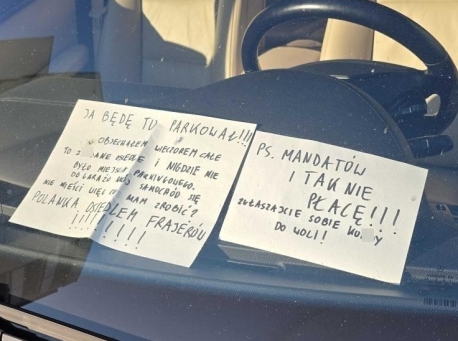 JA BĘDĘ TU PARKOWAŁ!!!
OBJECHAŁEM WIECZOREM CAŁE
TO Z ANE OSIEDLE I NIGDZIE NIE
BYŁO MIEJSCA PARKINGOWEGO.
DO GARAŻU SAMOCHÓD SIĘ
NIE MIEŚCI WIĘC CO MAM ZROBIĆ?
POLANKA OSIEDLEM FRAJERÓW
!!!!!!!!!
PS. MANDATÓW
I TAK NIE
PŁACĘ!!!
ZGŁASZAJCIE SOBIE KU Y
DO WOLI!